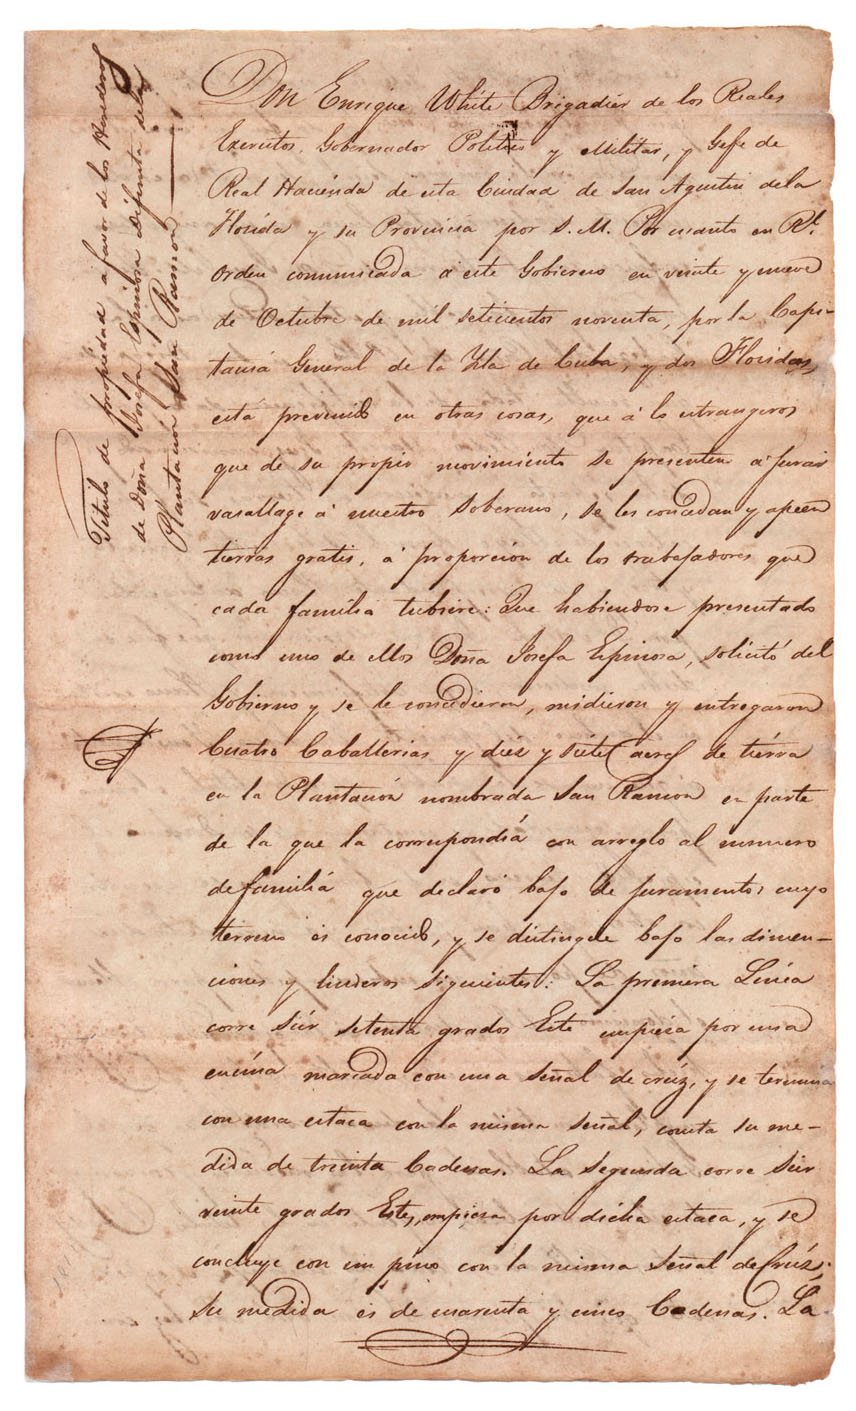 Titulo de propiedad á favor de los Herederos
de Doña Josefa Espinosa difunta de la
Plantacion San Ramon
Don Enrique White Brigadier de los Reales
Exercitos, Gobernador Politico y Militar, y Gefe de
Real Hacienda de esta Ciudad de San Agustin de la
Florida y su Provincia por S. M. Por cuanto en Rl.
orden comunicada á este Gobierno en veinte y nueve
de Octubre de mil setecientos noventa, por la Capi-
tania General de la Ysla de Cuba, y dos Floridas,
está prevenido en otras cosas, que á lo estrangeros
que de su propio movimiento se presenten á jurar
vasallage á nuestro Soberano, se les concedan y apeen
tierras gratis, á proporcion de los trabajadores que
cada familia tubiere: Que habiendose presentado
como uno de ellos Doña Josefa Espinosa, solicitó del
Gobierno y se le concedieron, midieron y entregaron
Cuatro Caballerias y diez y siete acres de tierra
en la Plantación nombrada San Ramon en parte
de la que la correspondia con arreglo al numero
de familia que declaró bajo de juramento, cuyo
terreno es conocido, y se distingue bajo las dimen-
ciones y linderos siguientes: La primera Linea
corre Súr setenta grados Este empiesa por una
encina marcada con una señal de crúz, y se termina
con una estaca con la misma señal, consta su me-
dida de treinta Cadenas. La segunda corre Súr
veinte grados Este, empiesa por dicha estaca, y se
concluye con un pino con la misma señal de Crúz.
Su medida es de cuarenta y cinco Cadenas. La